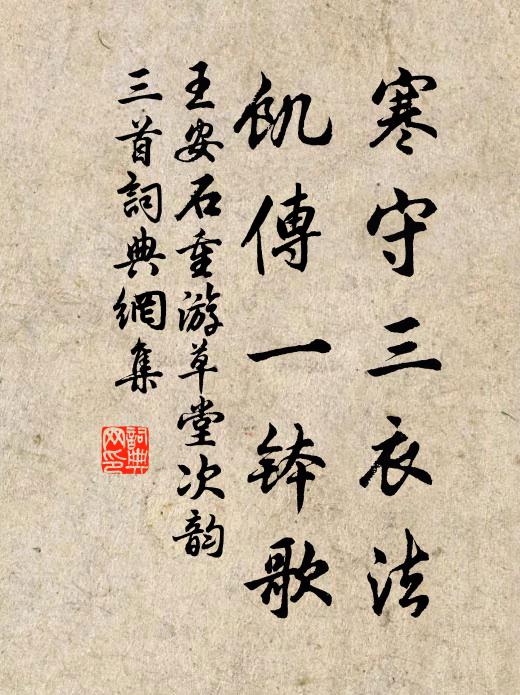 寒守三衣法
飢傳一鉢歌
王安石重游草堂次韵
三首詞典網集
詞典
网印